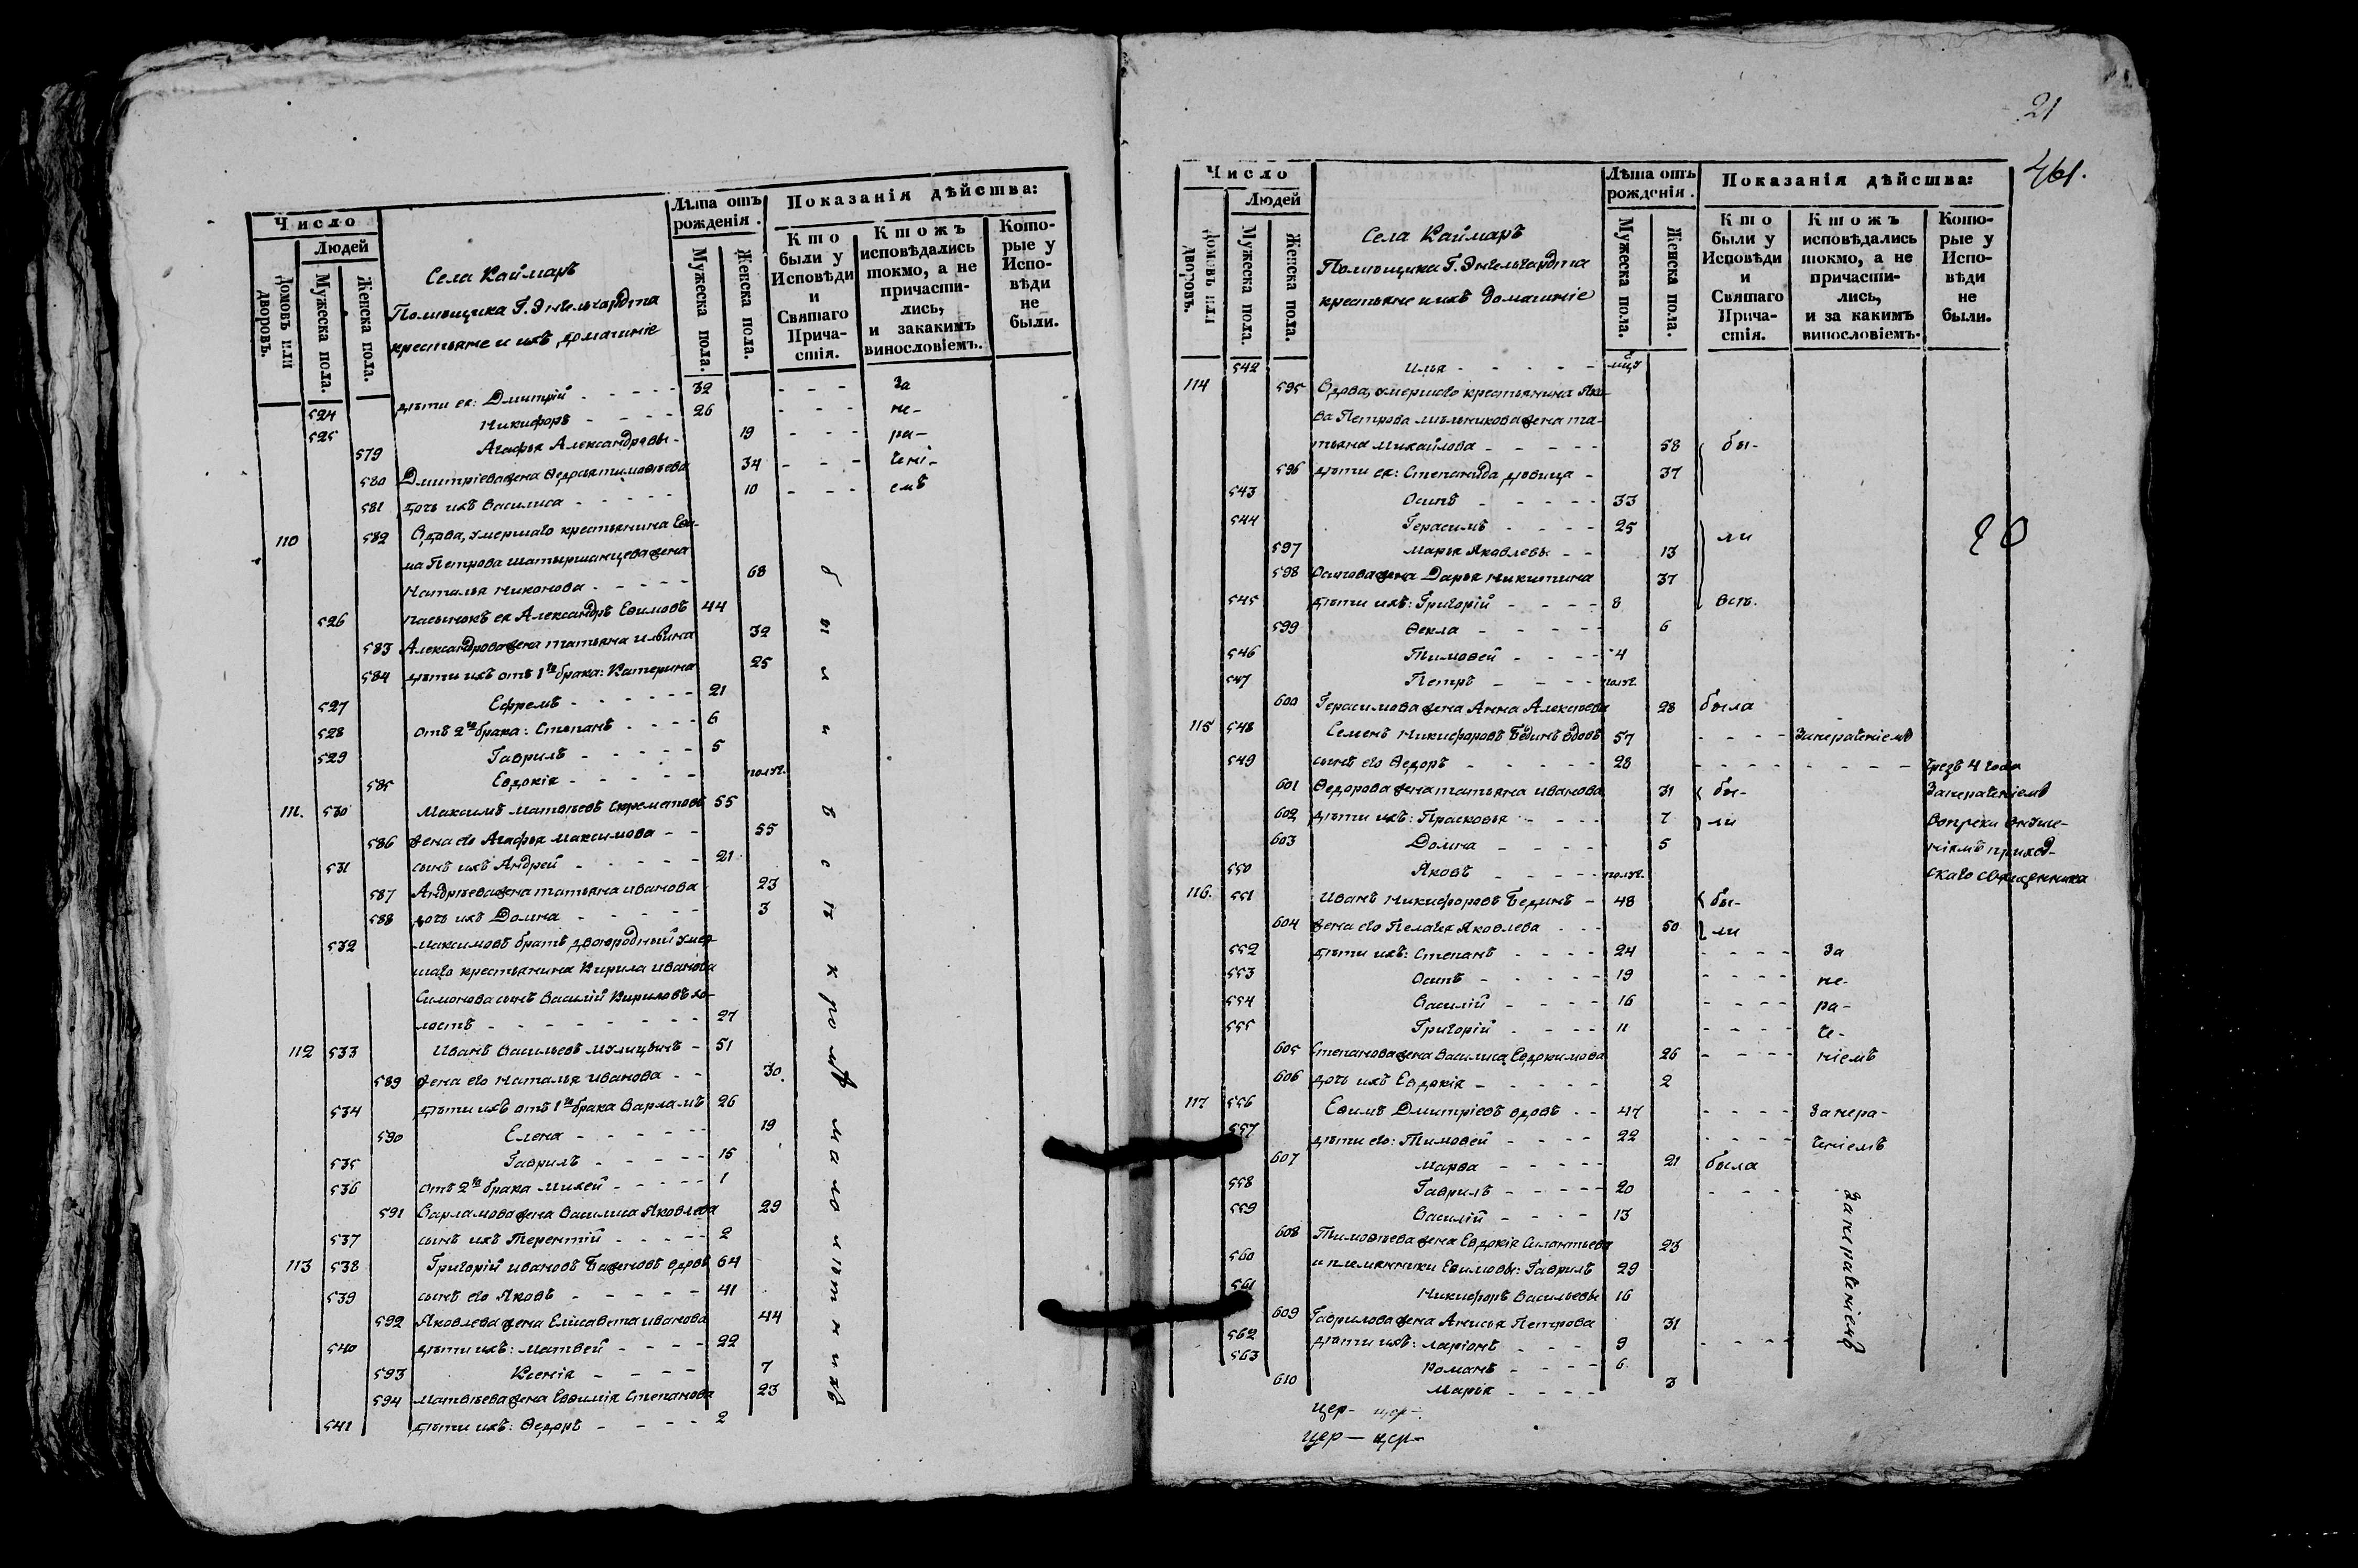 Число
Людей
Домовъ или дворовъ.
Мужеска пола.
Женска пола.
Села Каймаръ
Помѣщика Г. Энгельгардта
крестьяне и ихъ домашніе
Лѣта отъ рожденія.
Мужеска пола.
Женска пола.
Показанія дѣйства:
Кто были у Исповѣди и Святаго Причастія.
Ктожъ исповѣдались токмо, а не причастились, и закакимъ винословіемъ.
Которые у Исповѣди не были.
524 дѣти ея: Дмитрій - - - - 32 - - - За
525 Никифоръ - - - - 26 - - - не-
579 Агафья Александровы - 19 - - - ра-
580 Дмитріева жена Ѳедосья Тимоѳеева 34 - - - чені-
581 дочь ихъ Василиса - - - - 10 - - - емъ
110 582 Вдова, умершаго крестьянина Еѳи-
ма Петрова жена
Наталья Никонова - - - - 68
526 пасынокъ ея Александръ Еѳимовъ 44
583 Александрова жена Татьяна Ильина 32
584 дѣти ихъ отъ 1го брака: Катерина 25
527 Ефремъ - - - - - 21
528 отъ 2го брака: Степанъ - - - - 6
529 Гаврилъ - - - - - 5
585 Евдокія - - - - - полг.
111. 530 Максимъ Матвѣевъ 55
586 жена его Агафья Максимова - - 55
531 сынъ ихъ Андрей - - - - - 21
587 Андреева жена Татьяна Иванова 23
588 дочь ихъ Домна - - - - - 3
532 Максимовъ братъ двоюродный умер-
шаго крестьянина Кирила Иванова
Симонова сынъ Василій Кириловъ хо-
лостъ - - - - - - - - 27
112 533 Иванъ Васильевъ - 51
589 жена его Наталья Иванова - - 30
534 дѣти ихъ отъ 1го брака Варламъ 26
590 Елена - - - - - 19
535 Гаврилъ - - - - - 15
536 отъ 2го брака Михей - - - - - 1
591 Варламова жена Василиса Яковлева 29
537 сынъ ихъ Терентій - - - - - 2
113 538 Григорій Ивановъ Баженовъ вдовъ 64
539 сынъ его Яковъ - - - - - 41
592 Яковлева жена Елисавета Иванова 44
540 дѣти ихъ: Матвей - - - - 22
593 Ксенія - - - - 7
594 Матвѣева жена Евѳимія Степанова 23
541 дѣти ихъ: Ѳедоръ - - - - 2
были всѣ кромѣ малолѣтнихъ
21
461.
Число
Людей
Домовъ или дворовъ.
Мужеска пола.
Женска пола.
Села Каймаръ
Помѣщика Г. Энгельгардта
крестьяне и ихъ домашніе
Лѣта отъ рожденія.
Мужеска пола.
Женска пола.
Показанія дѣйства:
Кто были у Исповѣди и Святаго Причастія.
Ктожъ исповѣдались токмо, а не причастились, и за какимъ винословіемъ.
Которые у Исповѣди не были.
542 Илья - - - - -
114 595 Вдова, умершаго крестьянина Яко-
ва Петрова Мельникова жена Та-
тьяна Михайлова - - - - - 58 бы-
596 дѣти ея: Степанида дѣвица - 37
543 Осипъ - - - - - 33
544 Герасимъ - - - - 25 ли
597 Марья Яковлевы - - 13
598 Осипова жена Дарья Никитина 37
545 дѣти ихъ: Григорій - - - - 8 всѣ.
599 Ѳекла - - - - - 6
546 Тимоѳей - - - - 4
547 Петръ - - - - полг.
600 Герасимова жена Анна Алексѣева 28 была
115 548 Семенъ Никифоровъ Бединъ вдовъ 57 - - - - Занераченіемъ
549 сынъ его Ѳедоръ - - - - - 28 - - - - - - - - - чрезъ 4 года
601 Ѳедорова жена Татьяна Иванова 31 бы- Занераченіемъ
602 дѣти ихъ: Прасковья - - - - 7 ли вопреки внуше-
603 Домна - - - - 5 ніямъ приход-
550 Яковъ - - - - - полг. скаго священника
116. 551 Иванъ Никифоровъ Бединъ - 48 бы-
604 жена его Пелагея Яковлева - - - 50 ли
552 дѣти ихъ: Степанъ - - - - 24 - - - - За
553 Осипъ - - - - - 19 - - - - не-
554 Василій - - - - 16 - - - - ра-
555 Григорій - - - - 11 - - - - че-
605 Степанова жена Василиса Евдокимова 26 - - - - ніемъ
606 дочь ихъ Евдокія - - - - - 2
117 556 Еѳимъ Дмитріевъ вдовъ - - 47 - - - - Занера-
557 дѣти его: Тимоѳей - - - - 22 - - - - ченіемъ
607 Марѳа - - - - - 21 была
558 Гаврилъ - - - - - 20 - - - -
559 Василій - - - - 13
608 Тимоѳеева жена Евдокія Силантьева 23
560 и племянники Еѳимовы: Гаврилъ 29
561 Никифоръ Васильевы 16
609 Гаврилова жена Анисья Петрова 31
562 дѣти ихъ: Ларіонъ - - - - 9 - - - -
563 Романъ - - - - 6
610 Марія - - - - 3
Занераченіемъ
цер- цер-
цер- цер-